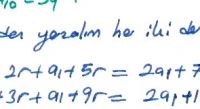 den yazalım her iki de
2r + a₁ + 5r = 2a₁ + 7
3r + a₁ + 9r = 2a₁ + 1